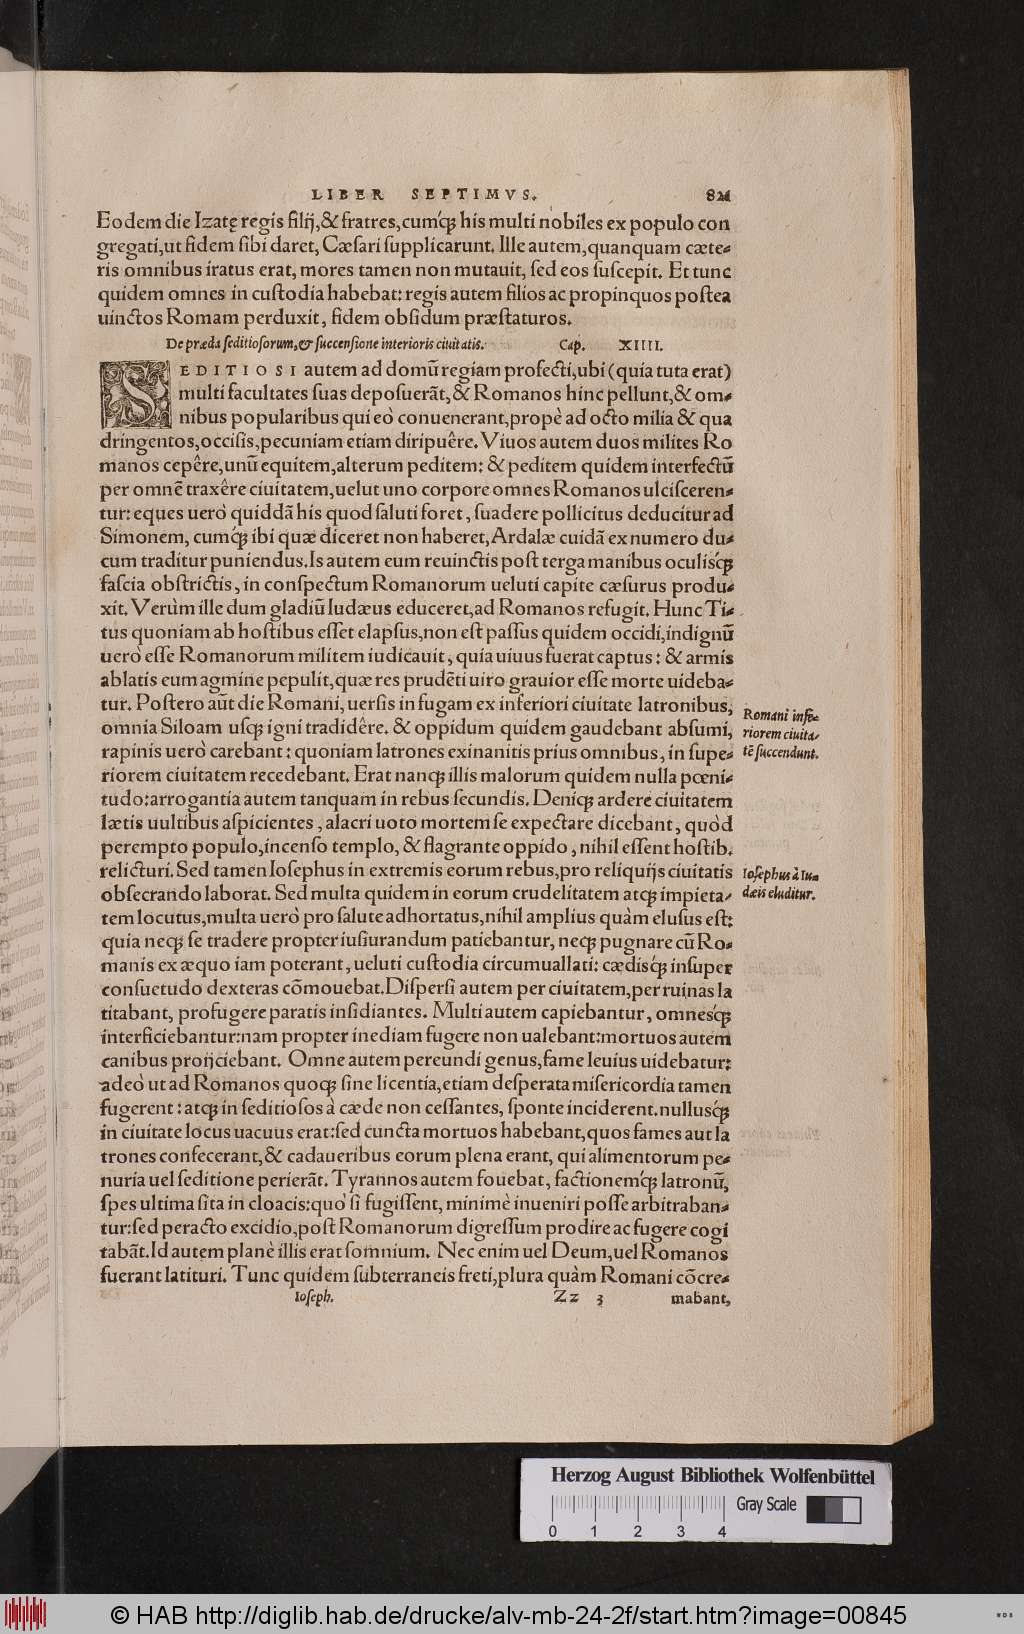 LIBER SEPTIMVS. 821
Eodem die Izatę regis filij, & fratres, cumq́ꝫ his multi nobiles ex populo con
gregati, ut fidem sibi daret, Cæsari supplicarunt. Ille autem, quanquam cæte-
ris omnibus iratus erat, mores tamen non mutauit, sed eos suscepit. Et tunc
quidem omnes in custodia habebat: regis autem filios ac propinquos postea
uinctos Romam perduxit, fidem obsidum præstaturos.
De præda seditiosorum, & succensione interioris ciuitatis. Cap. XIIII.
SEDITIOSI autem ad domū regiam profecti, ubi (quia tuta erat)
multi facultates suas deposuerāt, & Romanos hinc pellunt, & om-
nibus popularibus qui eò conuenerant, propè ad octo milia & qua
dringentos, occisis, pecuniam etiam diripuêre. Viuos autem duos milites Ro
manos cepêre, unū equitem, alterum peditem: & peditem quidem interfectū
per omnē traxêre ciuitatem, uelut uno corpore omnes Romanos ulcisceren-
tur: eques uerò quiddā his quod saluti foret, suadere pollicitus deducitur ad
Simonem, cumq́ꝫ ibi quæ diceret non haberet, Ardalæ cuidā ex numero du-
cum traditur puniendus. Is autem eum reuinctis post terga manibus oculisq́ꝫ
fascia obstrictis, in conspectum Romanorum ueluti capite cæsurus produ-
xit. Verùm ille dum gladiū Iudæus educeret, ad Romanos refugit. Hunc Ti-
tus quoniam ab hostibus esset elapsus, non est passus quidem occidi, indignū
uerò esse Romanorum militem iudicauit, quia uiuus fuerat captus: & armis
ablatis eum agmine pepulit, quæ res prudēti uiro grauior esse morte uideba-
tur. Postero aūt die Romani, uersis in fugam ex inferiori ciuitate latronibus,
omnia Siloam usqꝫ igni tradidêre. & oppidum quidem gaudebant absumi,
rapinis uerò carebant: quoniam latrones exinanitis prius omnibus, in supe-
riorem ciuitatem recedebant. Erat nanqꝫ illis malorum quidem nulla pœni-
tudo: arrogantia autem tanquam in rebus secundis. Deniqꝫ ardere ciuitatem
lætis uultibus aspicientes, alacri uoto mortem se expectare dicebant, quòd
perempto populo, incenso templo, & flagrante oppido, nihil essent hostib.
relicturi. Sed tamen Iosephus in extremis eorum rebus, pro reliquijs ciuitatis
obsecrando laborat. Sed multa quidem in eorum crudelitatem atqꝫ impieta-
tem locutus, multa uerò pro salute adhortatus, nihil amplius quàm elusus est:
quia neqꝫ se tradere propter iusiurandum patiebantur, neqꝫ pugnare cū Ro-
manis ex æquo iam poterant, ueluti custodia circumuallati: cædisq́ꝫ insuper
consuetudo dexteras cōmouebat. Dispersi autem per ciuitatem, per ruinas la
titabant, profugere paratis insidiantes. Multi autem capiebantur, omnesq́ꝫ
interficiebantur: nam propter inediam fugere non ualebant: mortuos autem
canibus proijciebant. Omne autem pereundi genus, fame leuius uidebatur:
adeò ut ad Romanos quoqꝫ sine licentia, etiam desperata misericordia tamen
fugerent: atqꝫ in seditiosos à cæde non cessantes, sponte inciderent. nullusq́ꝫ
in ciuitate locus uacuus erat: sed cuncta mortuos habebant, quos fames aut la
trones confecerant, & cadaueribus eorum plena erant, qui alimentorum pe-
nuria uel seditione perierāt. Tyrannos autem fouebat, factionemq́ꝫ latronū,
spes ultima sita in cloacis: quò si fugissent, minimè inueniri posse arbitraban-
tur: sed peracto excidio, post Romanorum digressum prodire ac fugere cogi
tabāt. Id autem planè illis erat somnium. Nec enim uel Deum, uel Romanos
fuerant latituri. Tunc quidem subterraneis freti, plura quàm Romani cōcre-
Ioseph. Zz 3 mabant,
Romani infe-
riorem ciuita-
tē succendunt.
Iosephus à Iu-
dæis eluditur.
Herzog August Bibliothek Wolfenbüttel
Gray Scale
0 1 2 3 4
© HAB http://diglib.hab.de/drucke/alv-mb-24-2f/start.htm?image=00845